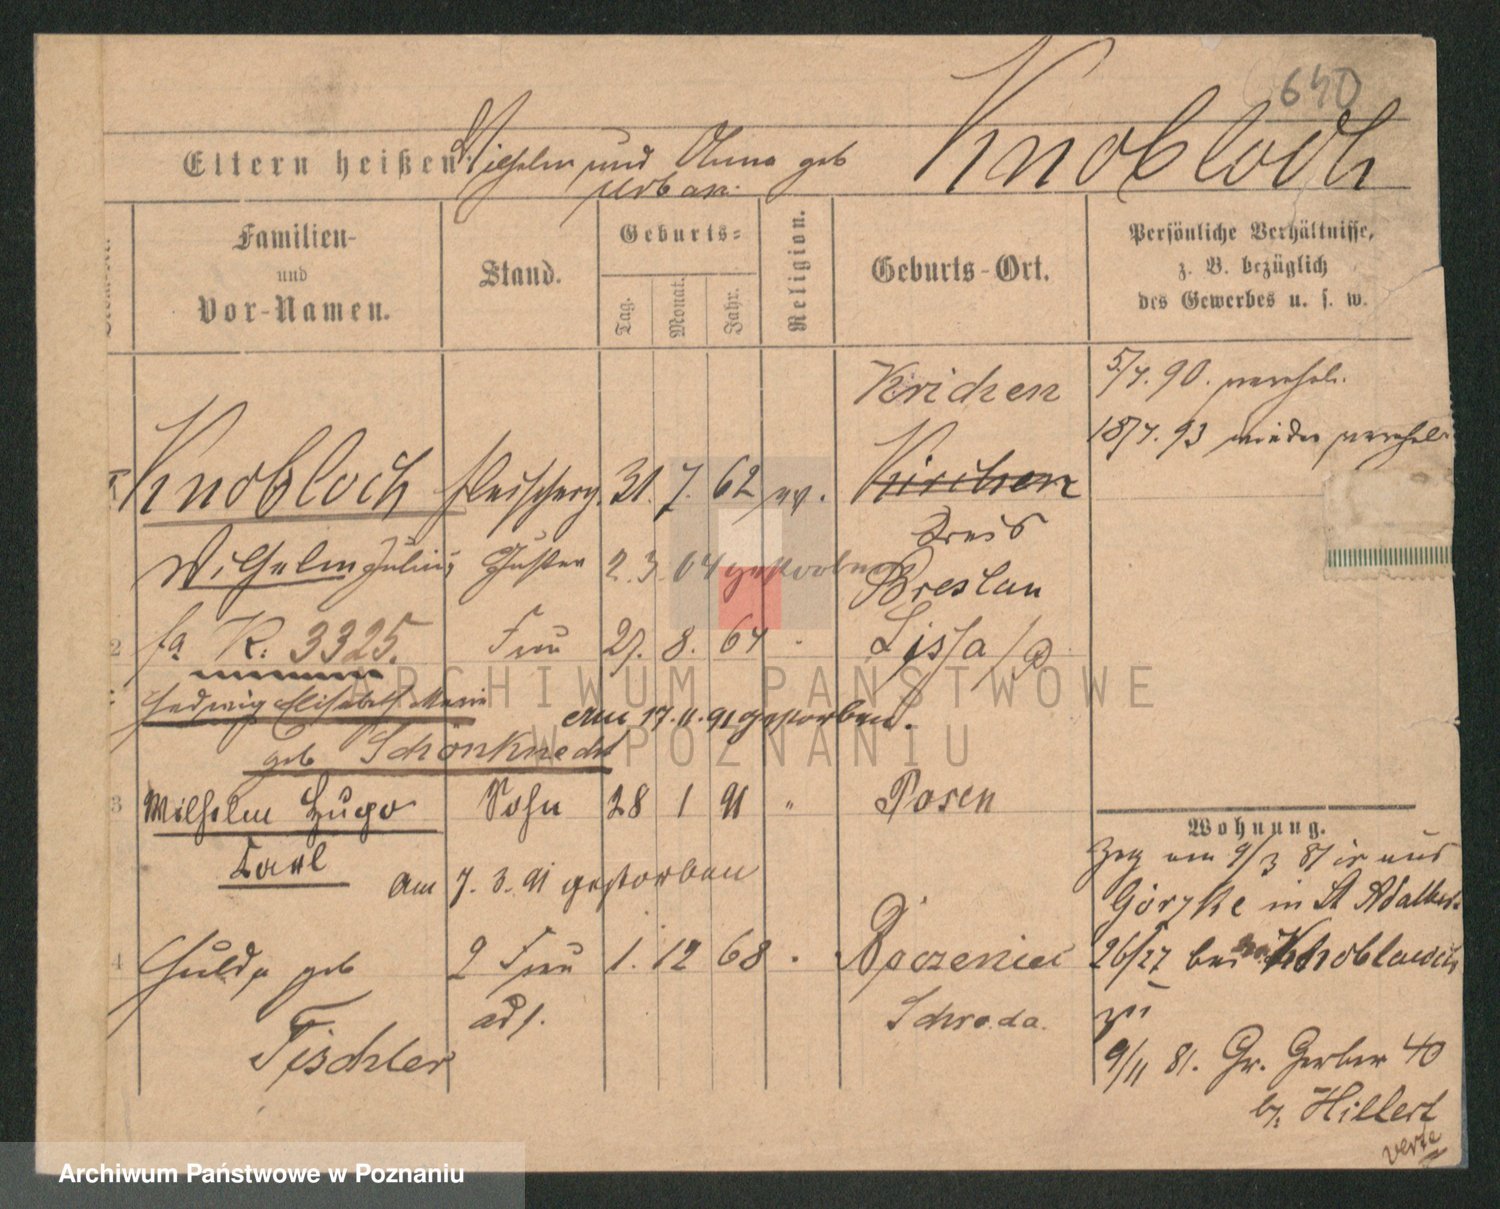 640
Eltern heißen: Wilhelm und Anna geb Knobloch
Urban.
Familien-
und
Vor-Namen.
Stand.
Geburts-
Tag.
Monat.
Jahr.
Religion.
Geburts-Ort.
Persönliche Verhältnisse,
z. B. bezüglich
des Gewerbes u. s. w.
Krichen
5/7. 90. verehel.
18/7. 93 wieder verehel.
Knobloch Fleischerg. 31. 7. 62 ev. Kirchen
Kreis
Wilhelm Julius 2. 3. 04 gestorben
Breslau
2 fa K. 3325. Frau 29. 8. 64 Lissa /P
Hedwig Elisabeth Marie
am 17. 11. 91 gestorben.
geb Schönknecht
3 Wilhelm Hugo Sohn 28 1 91 " Posen
Karl
Am 7. 3. 91 gestorben
Wohnung.
Zzg am 9/3 81 ir aus
Görzke in St Adalbert
4 Hulda geb 2 Frau 1. 12 68
26/27 bei Knoblauch
Tischler
Schroda.
zu
9/11 81. Gr. Gerber 40
b. Hillert
verte
ARCHIWUM PAŃSTWOWE
W POZNANIU
Archiwum Państwowe w Poznaniu